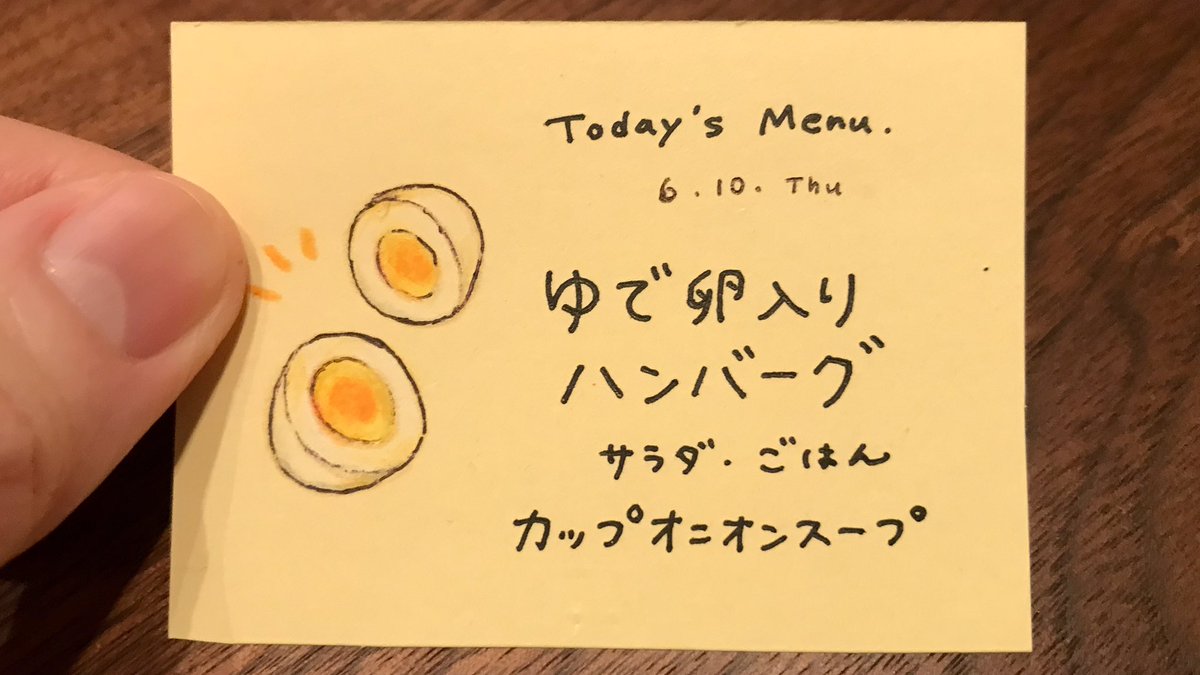 Today's Menu.
6.10. Thu
ゆで卵入り
ハンバーグ
サラダ・ごはん
カップオニオンスープ